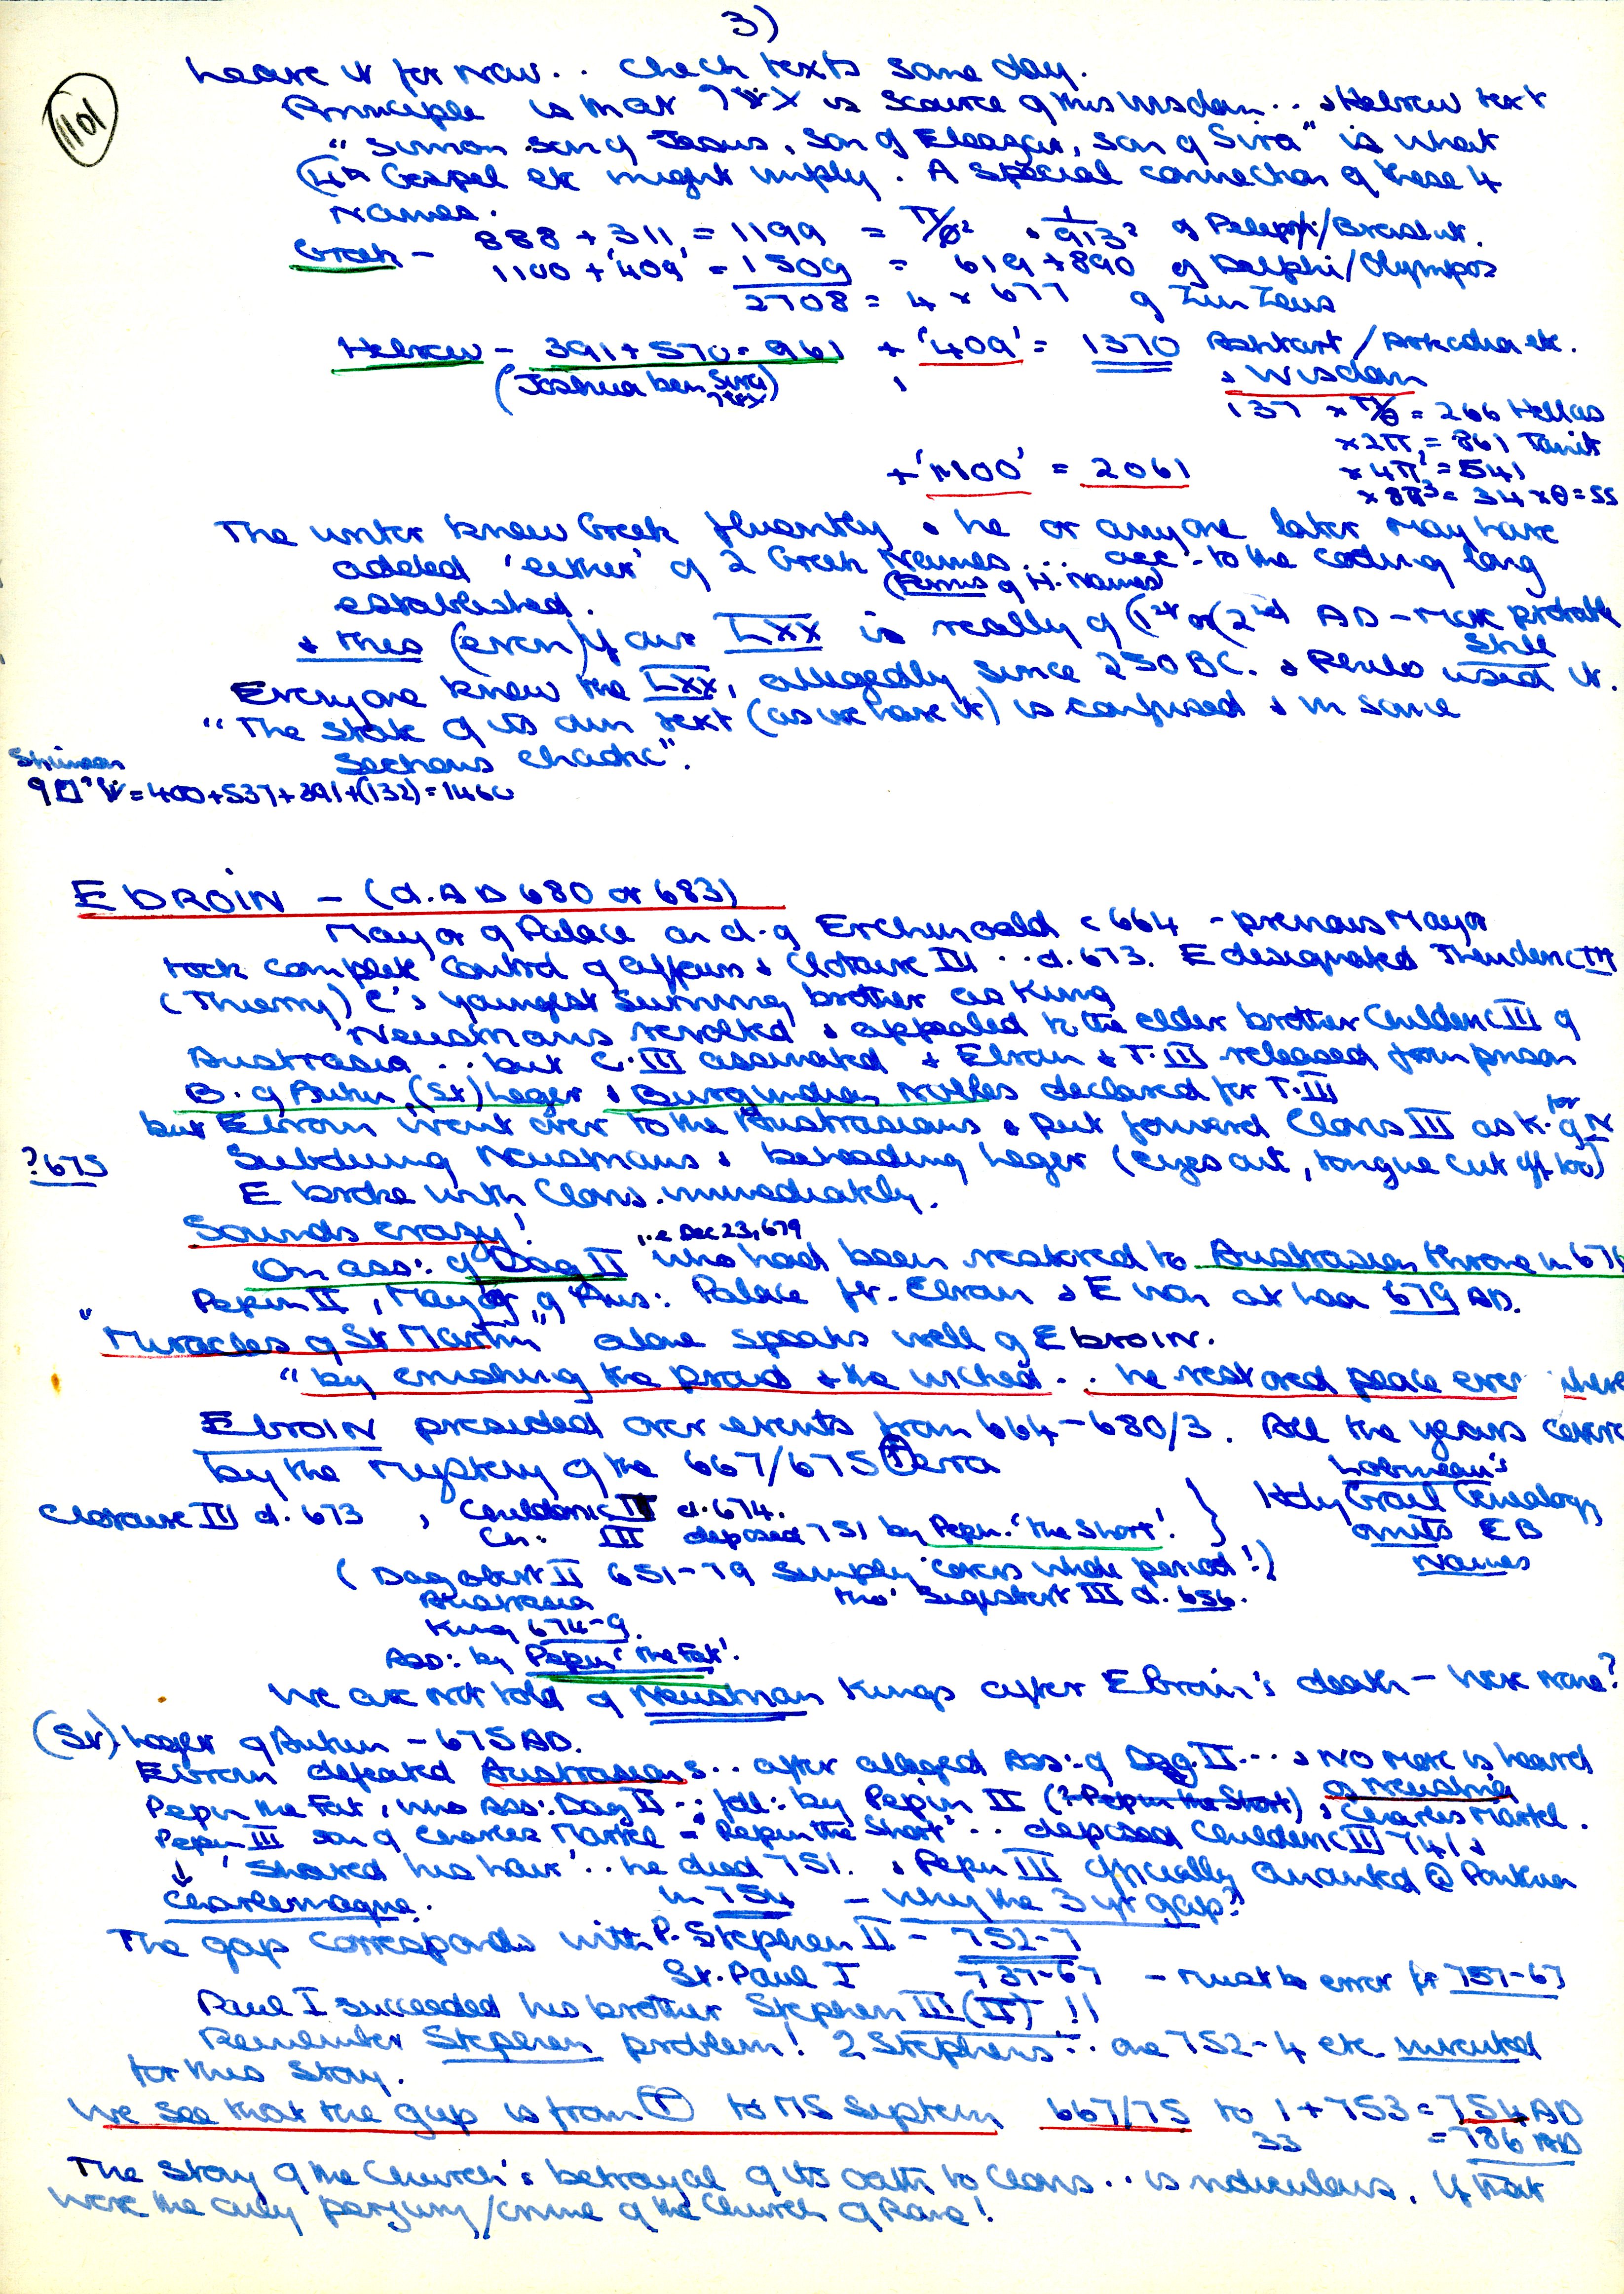 3)
1101
Leave it for now.. Check texts some day.
Principle is that is source of this wisdom... & Hebrew text
"Simon son of Jesus, son of Eleazar, son of Sira" is what
4th Gospel etc might imply. A special connection of these 4
Names.
Greek - 888 + 311 = 1199 = π/θ² & 1/913² of
1100 + '409' = 1509 = 619 + 890 of Delphi/Olympos
2708 = 4 x 677 of Zeus
Hebrew - 391 + 570 = 961 + '409' = 1370 Ashtart / Arkadia etc.
(Joshua ben Sira) & Wisdom
137 x π/θ = 266 Hellas
x 2π = 861 Tanit
x 4π² = 541
x 8π³ = 34 x θ = 55
+ '1100' = 2061
The writer knew Greek fluently & he or anyone later may have
added 'either' of 2 Greek Names... acc. to the coding long
(Forms of H. Names)
established.
& thus (even) if our LXX is really of (1st or (2nd AD - most probable
Still
Everyone knew the LXX, allegedly since 250 BC. & Philo used it.
"The state of its own text (as we have it) is confused & in some
Sections chaotic".
= 400 + 537 + 391 + (132) = 1460
EBROIN - (d. AD 680 or 683)
Mayor of Palace on d. of Erchinoald c 664 - previous Mayor
took complete control of affairs & Clotaire III .. d. 673. E designated Theuderic III
(Thierry) C's youngest surviving brother as King
Neustrians revolted & appealed to the elder brother Childeric III of
Austrasia .. but C. III assassinated & Ebroin & T. III released from prison
B. of Autun, (St) Leger & Burgundian nobles declared for T. III
but Ebroin went over to the Austrasians & put forward Clovis III as K. of N
for
?675
Subduing Neustrians & beheading Leger (eyes out, tongue cut off too)
E broke with Clovis immediately.
Sounds crazy!
i.e Dec 23, 679
On ass: of Dag II who had been restored to Austrasian throne in 676
Pepin II, Mayor of Aus: Palace ft. Ebroin & E won at Laon 679 AD.
"Miracles of St Martin" alone speaks well of Ebroin.
"by crushing the proud & the wicked .. he restored peace everywhere
EbroIN presided over events from 664-680/3. All the years covered
by the mystery of the 667/675 (T) erra
Lobineau's
Holy Grail Genealogy
omits EB
Names
Clotaire III d. 673, Childeric II d. 674.
Ch: III deposed 751 by Pepin 'the Short'.
(Dagobert II 651-79 simply covers whole period!)
Austrasia
King 674-9.
tho' Sigisbert III d. 656.
Ass: by Pepin 'the Fat'.
We are not told of Neustrian Kings after Ebroin's death - were none?
(St) Leger of Autun - 675 AD.
Ebroin defeated Austrasians .. after alleged Ass: of Dag II ... & NO More is heard
of Neustria
Pepin the Fat, who Ass: Dag II .. foll: by Pepin II (?Pepin the Short) & Charles Martel.
Pepin III son of Charles Martel = 'Pepin the Short' .. deposed Childeric III 741 &
↓ 'Shaved his hair' .. he died 751. & Pepin III officially anointed @ Ponthion
Charlemagne.
in 754 - why the 3 yr gap?
The gap corresponds with P. Stephen II - 752-7
St. Paul I 737-67 - must be error for 757-67
Paul I succeeded his brother Stephen III (II) !!
Remember Stephen problem! 2 Stephens .. one 752-4 etc invented
for this Story.
We see that the gap is from (T) to MS System 667/75 to 1 + 753 = 754 AD
33 = 786 AD
The Story of the Church's betrayal of its oath to Clovis .. is ridiculous. If that
were the only perjury/crime of the Church of Rome!